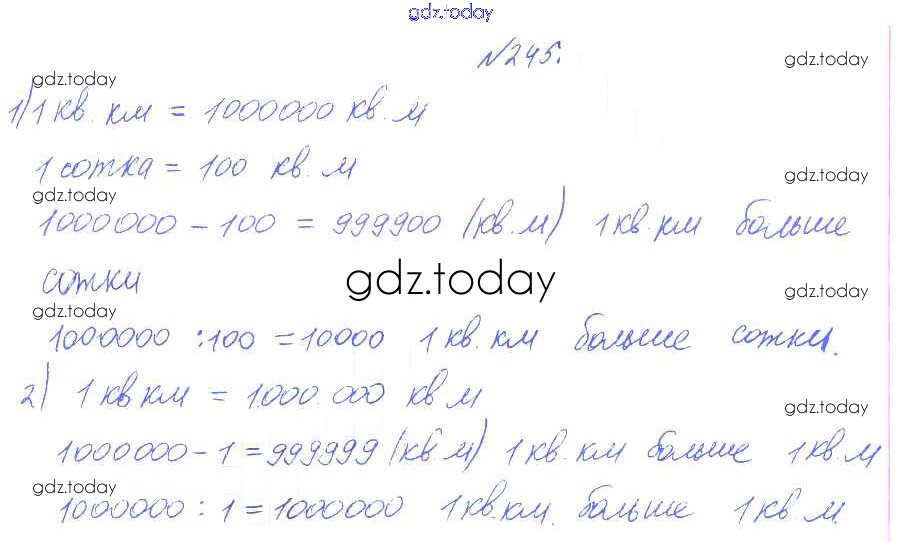 gdz.today
№245.
gdz.today gdz.today
1) 1 кв. км = 1000000 кв. м
1 сотка = 100 кв. м
gdz.today gdz.today
1000000 - 100 = 999900 (кв. м) 1 кв. км больше
сотки
gdz.today
gdz.today gdz.today
1000000 : 100 = 10000 1 кв. км больше сотки.
2) 1 кв км = 1.000.000 кв м
gdz.today
1000000 - 1 = 999999 (кв. м) 1 кв. км больше 1 кв. м
gdz.today
1000000 : 1 = 1000000 1 кв. км. больше 1 кв м.